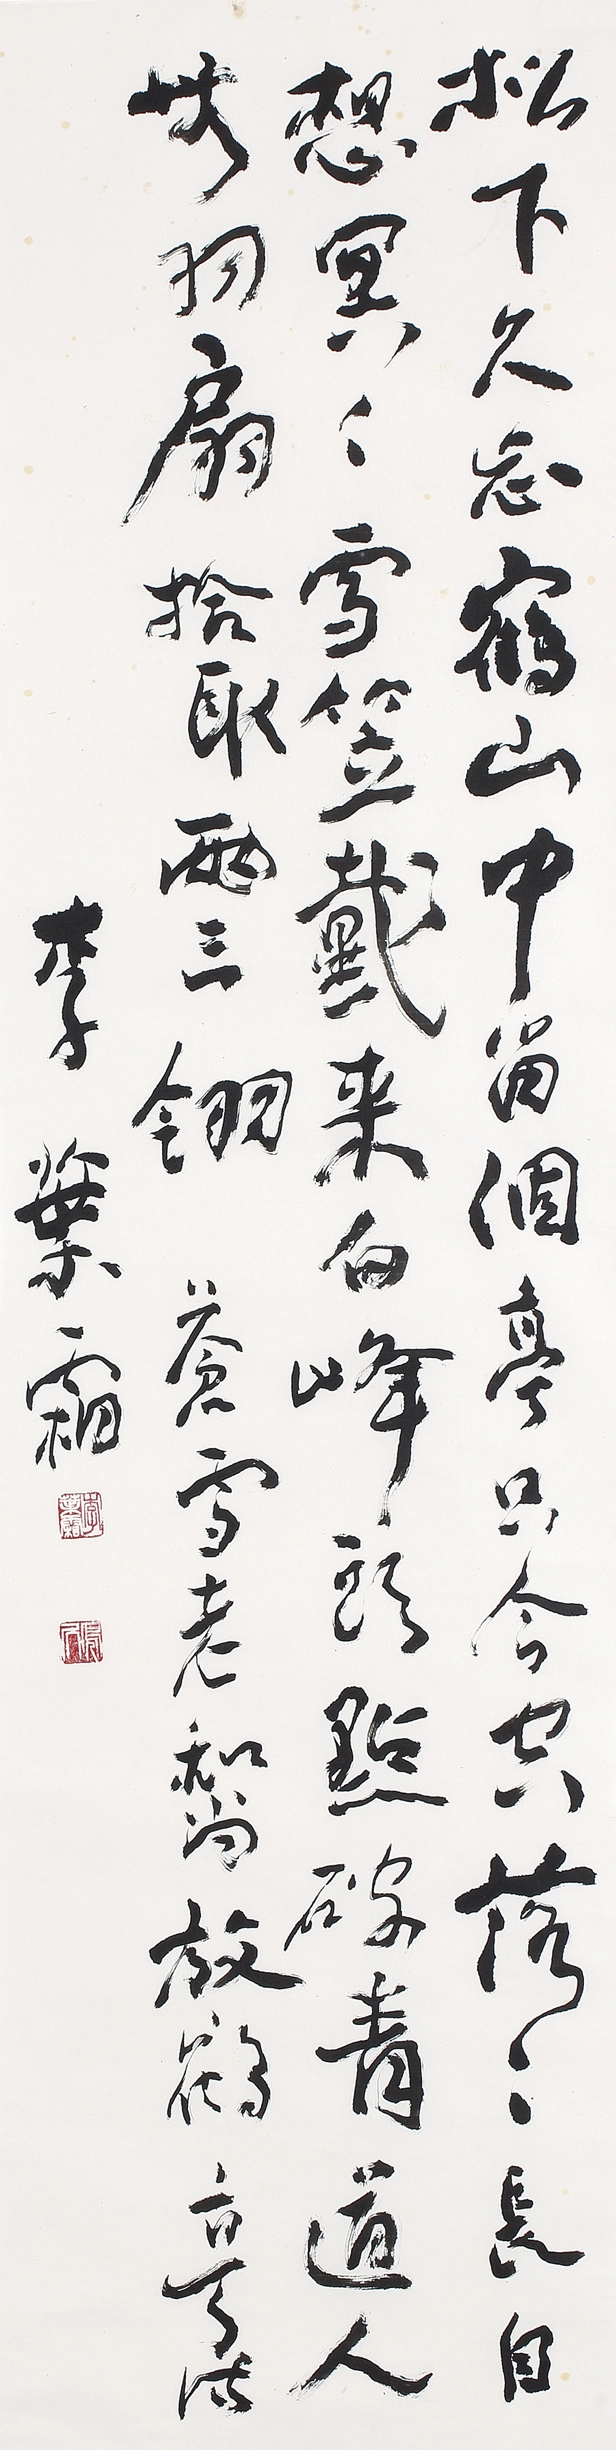 松下久忘鶴山中留個亭只今空落〻長自
想冥〻雪笠戴来白峰頭點破青道人
無羽扇拾取兩三翎 蒼雪老和尚放鶴亭詩
李葉霜
李葉霜